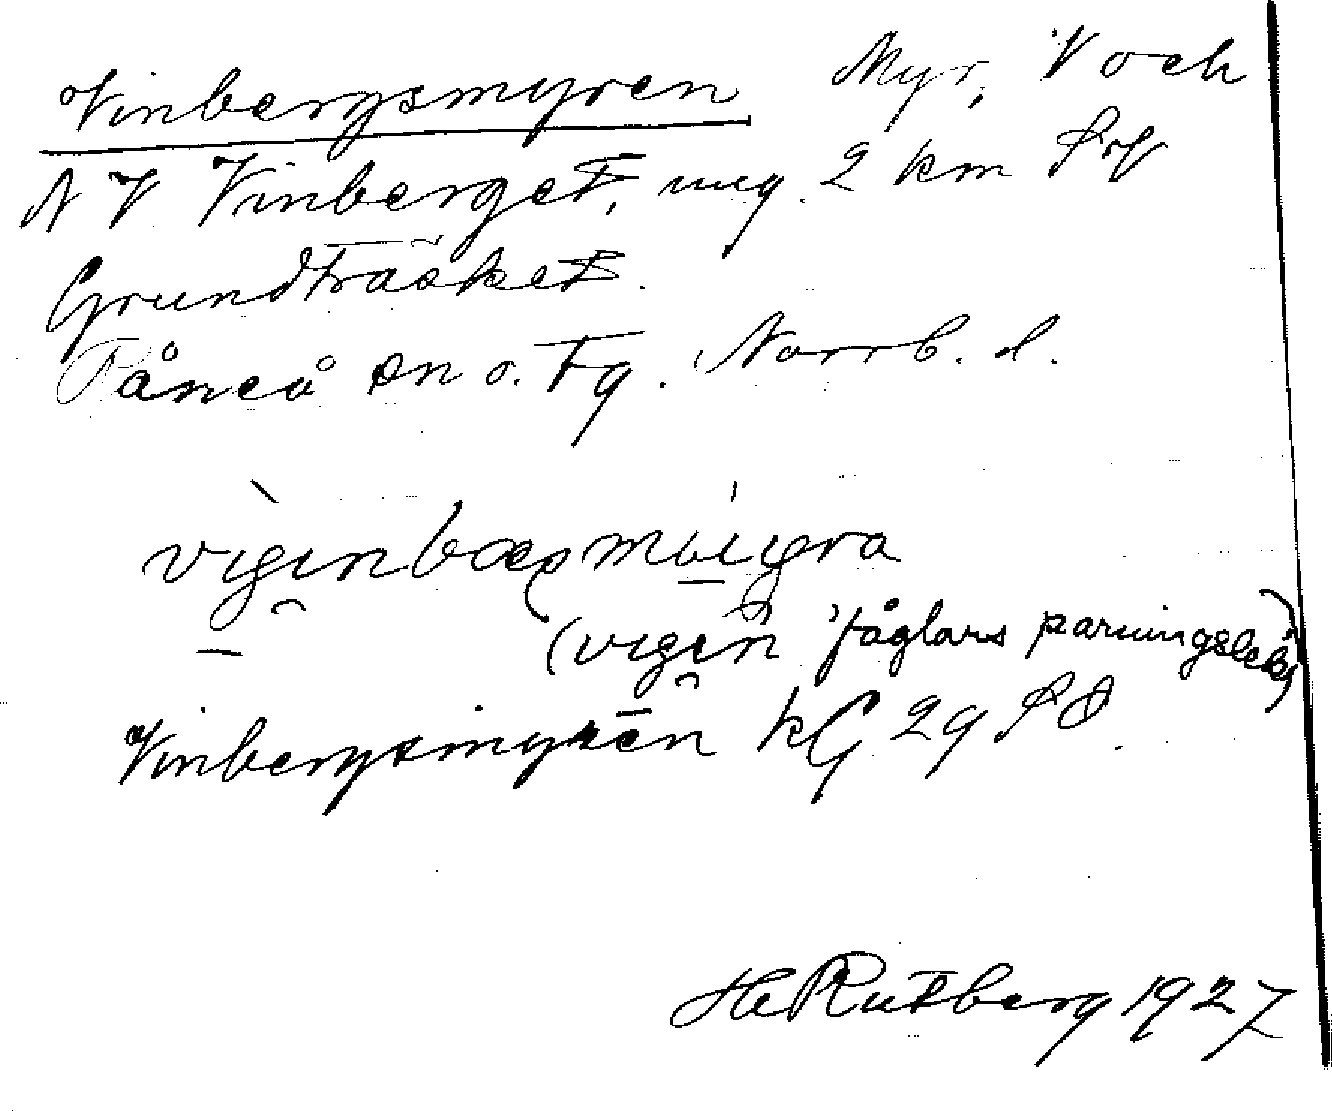 Vinbergsmyren Myr, V och
NV Vinberget, ung. 2 km SV
Grundträsket.
Råneå sn o. tg. Norrb. l.
(vigin 'fåglars parningslek')
Vinbergsmyren kG 29 SO.
He Rutberg 1927